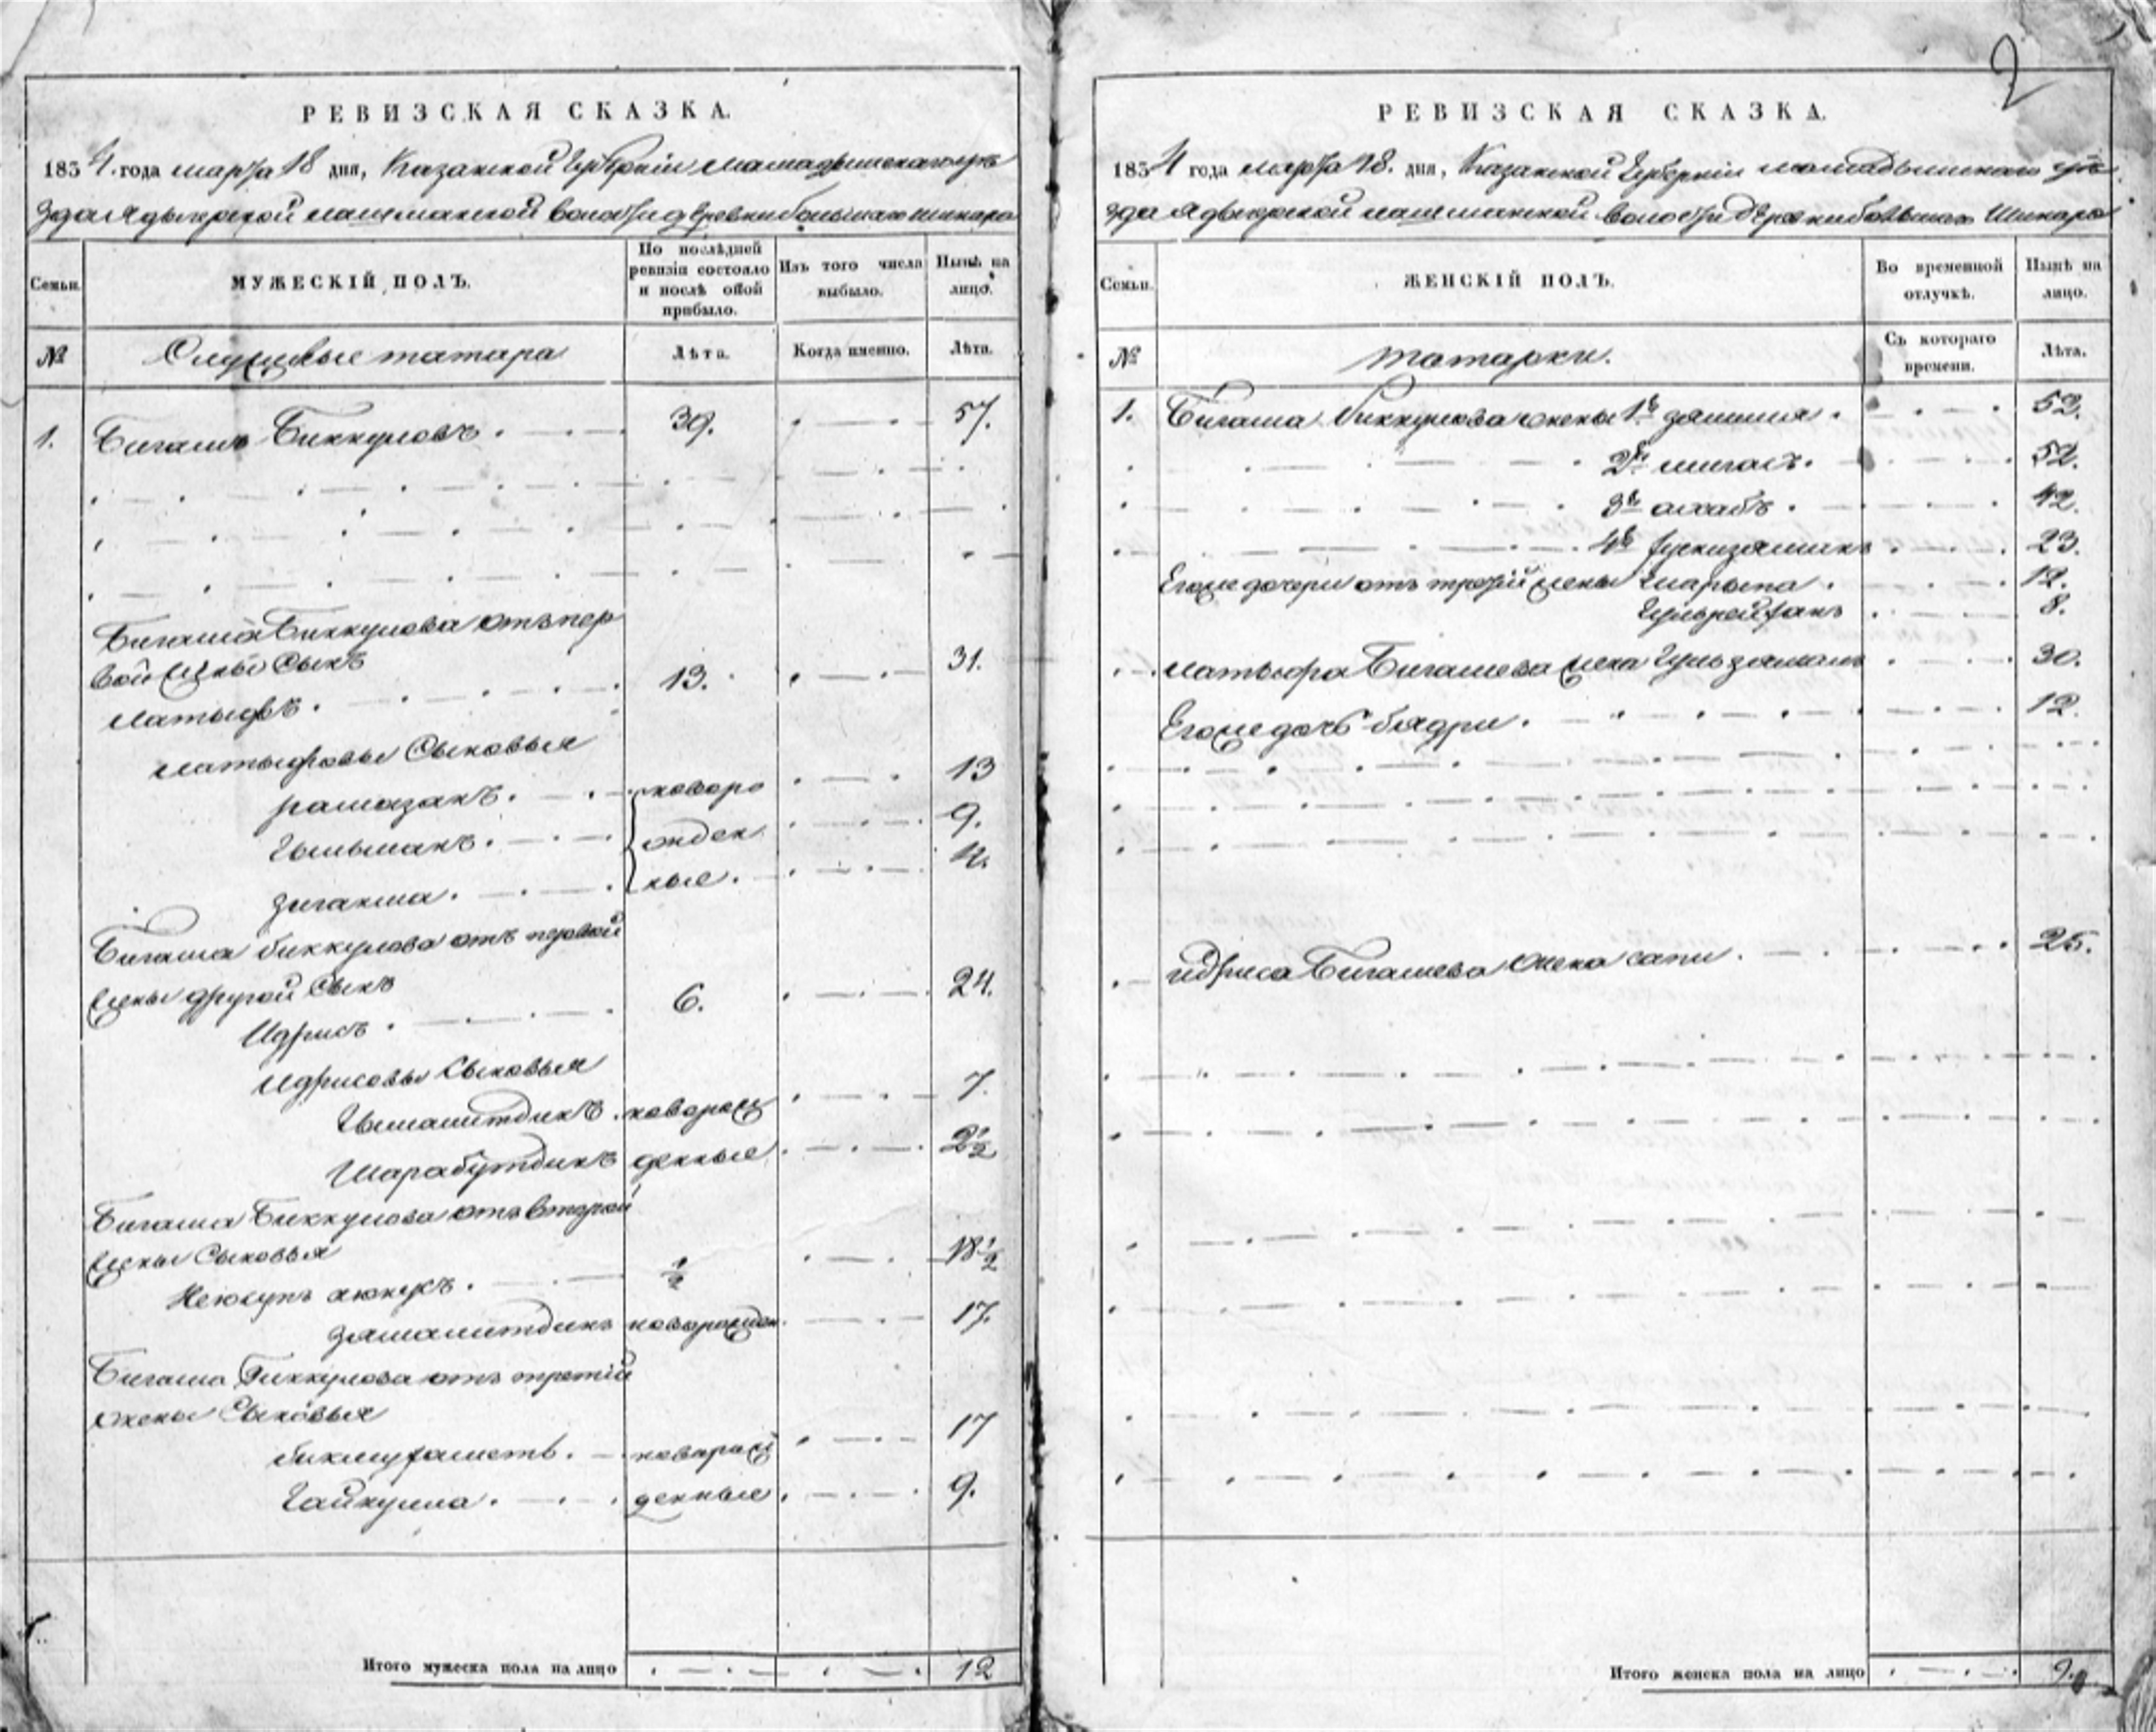 2
РЕВИЗСКАЯ СКАЗКА.
1834. года марта 18 дня, Казанской Губернии Мамадышскаго уѣ
зда Адыерской волости деревни большаго Шинара
Семьи. МУЖЕСКІЙ ПОЛЪ. По послѣдней ревизіи состояло и послѣ оной прибыло. Изъ того числа выбыло. Нынѣ на лицо.
№ Служивые татара Лѣта. Когда именно. Лѣта.
1. Бигашъ Биккуловъ 39. 57.
Бигаша Биккулова отъ пер
вой жены Сынъ
Латыфъ. 13. 31.
Латыфовы Сыновья
рамазанъ. новоро 13
Гыльманъ. жден 9.
зиганша. ные. 4.
Бигаша биккулова отъ первой
жены другой Сынъ
Идрисъ. 6. 24.
Идрисовы Сыновья
новорож 7.
Шарабутдинъ денные 2 1/2
Бигаша Биккулова отъ второй
жены Сыновья
1/2 18 1/2
замалитдинъ новорожден. 17.
Бигаша Биккулова отъ третій
жены Сыновья
бикмухаметь. новорож 17
Гайнулла. денные. 9.
Итого мужеска пола на лицо 12
РЕВИЗСКАЯ СКАЗКА.
1834 года марта 18. дня, Казанской Губерніи мамадышскаго уѣ
зда Адыерской волости деревни большаго Шинара
Семьи. ЖЕНСКІЙ ПОЛЪ. Во временной отлучкѣ. Нынѣ на лицо.
№ татарки. Съ котораго времени. Лѣта.
1. Бигаша Биккулова жены 1я 52.
2я 52.
3я 42.
4я 23.
Егоже дочери отъ третій жены 12.
8.
Латыфа Бигашева жена Гульзямалъ 30.
Егоже дочь бядри. 12.
Идриса Бигашева жена сапи. 25.
Итого женска пола на лицо 9.